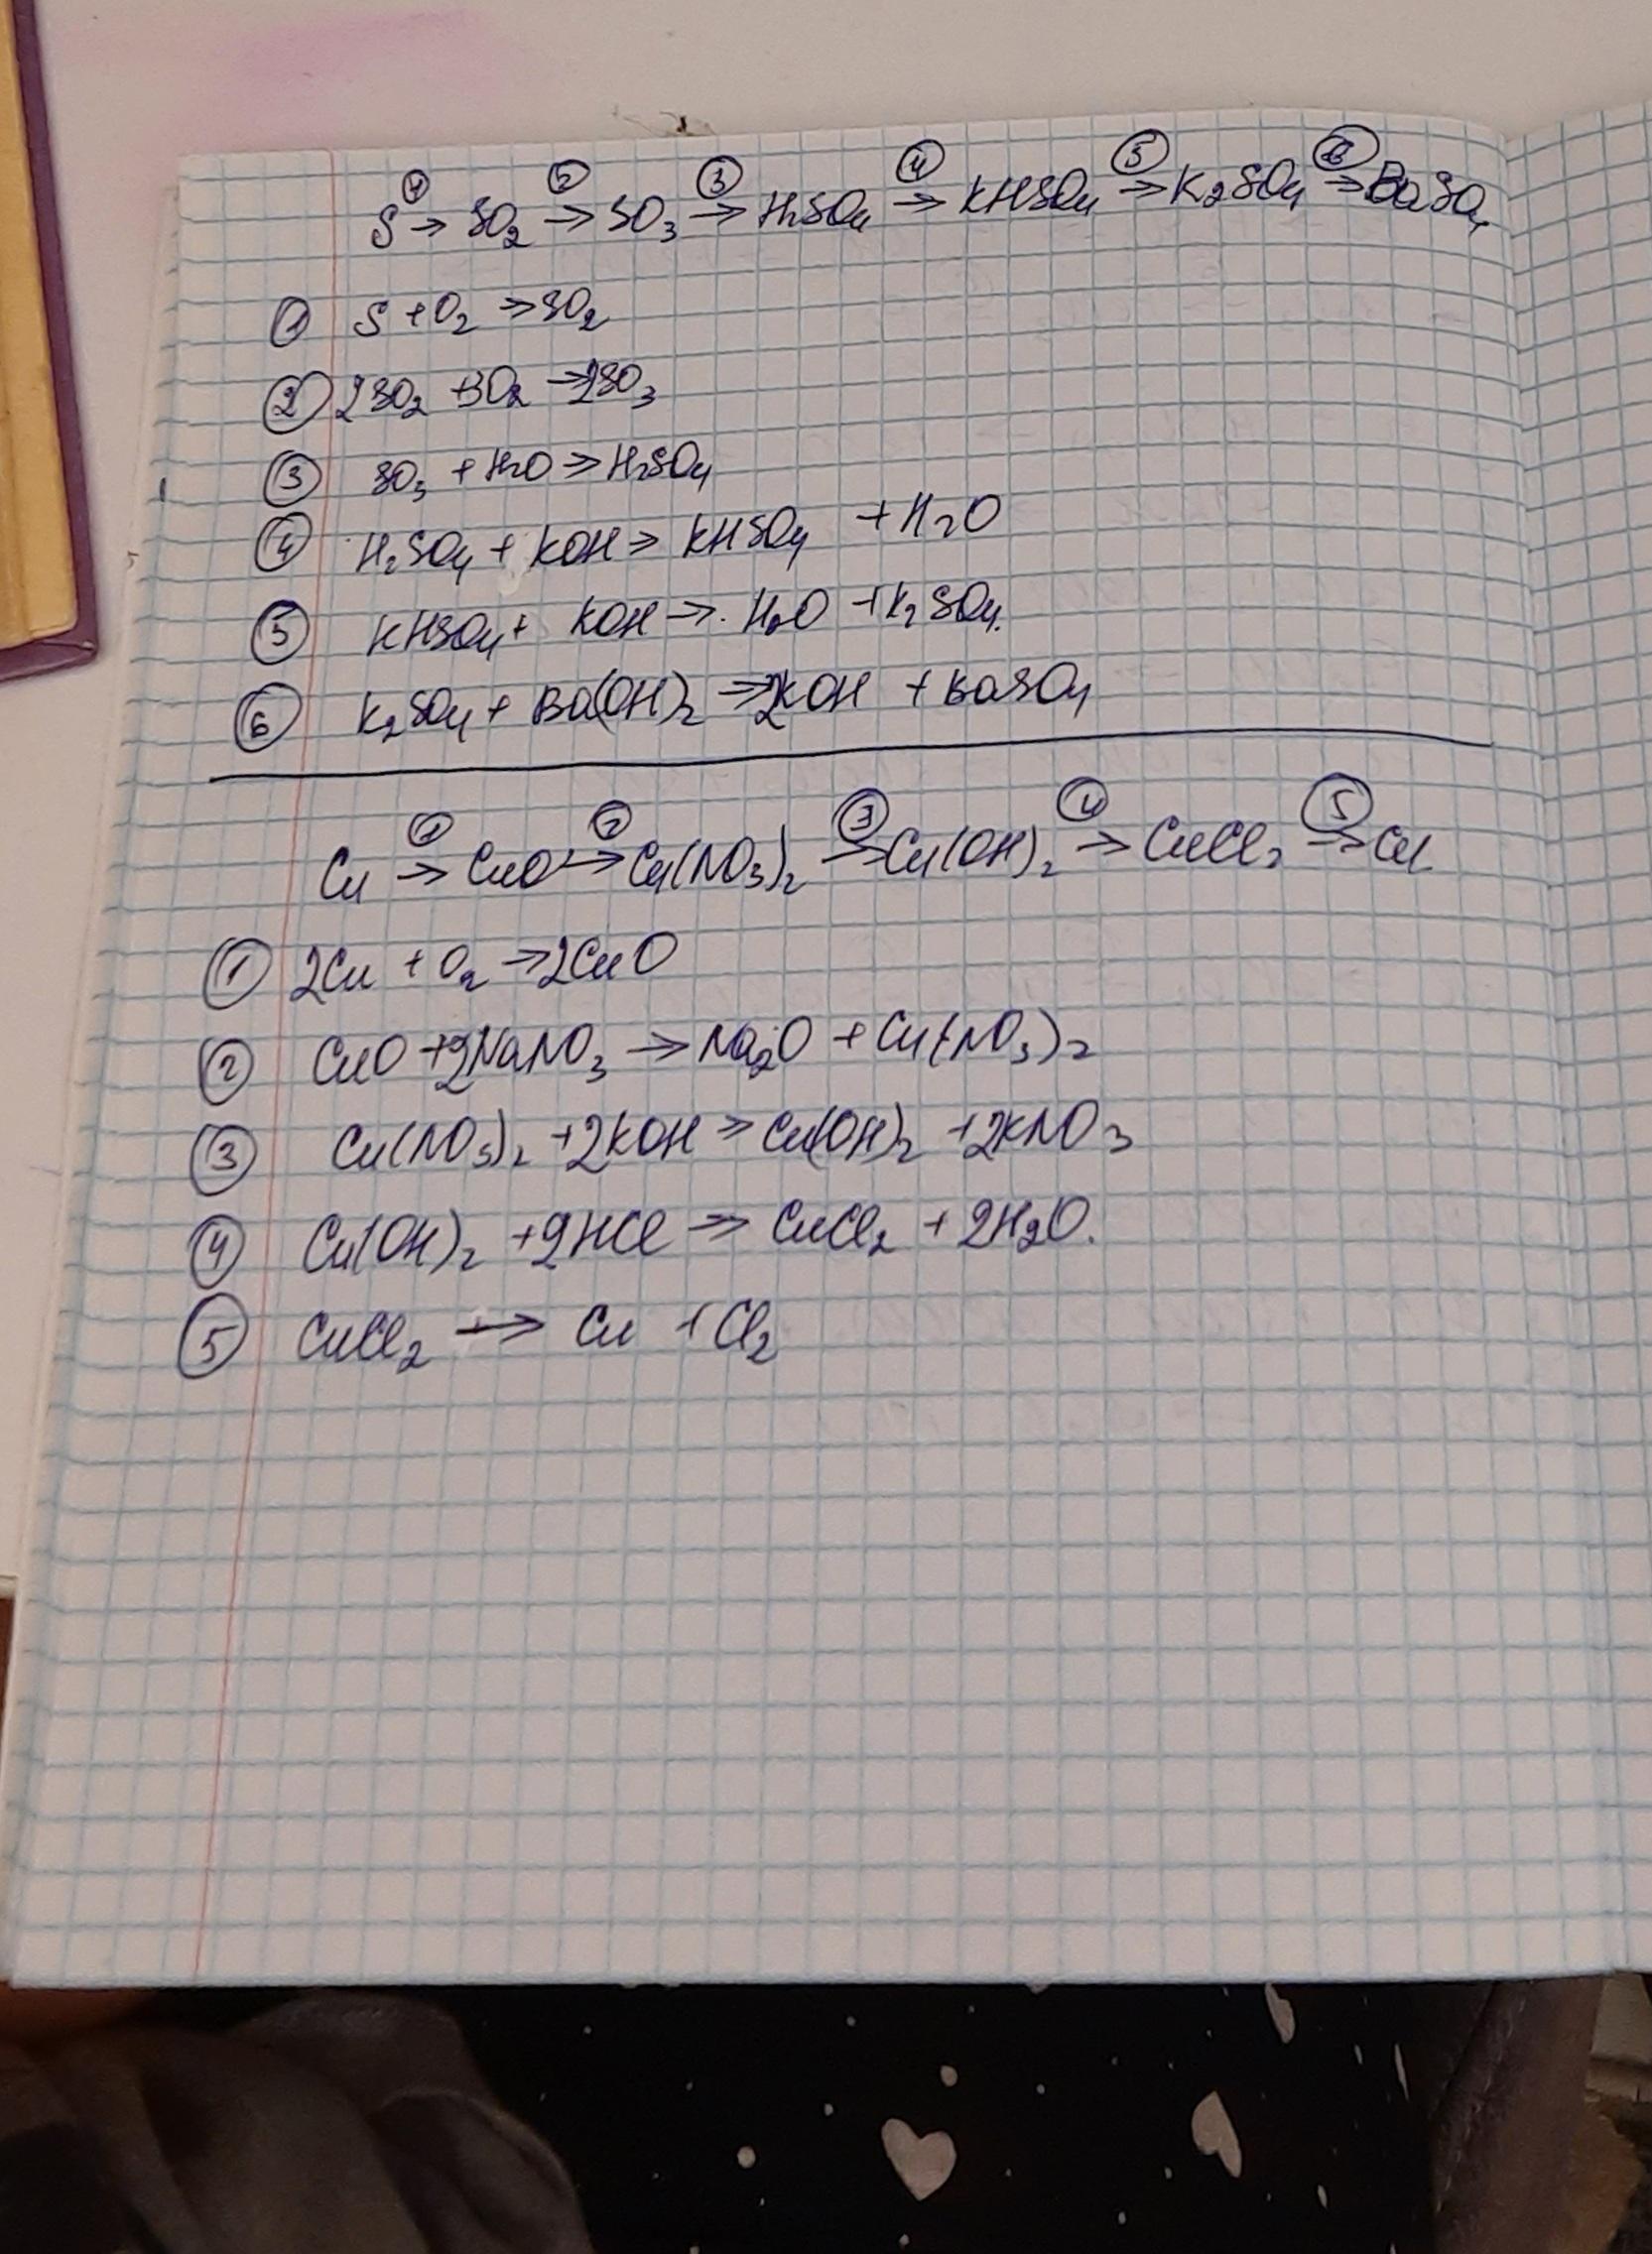 ① S → ② SO₂ → ③ SO₃ → H₂SO₄ ④ → KHSO₄ ⑤ → K₂SO₄ ⑥ → BaSO₄
① S + O₂ → SO₂
② 2SO₂ + 3O₂ → 2SO₃
③ SO₃ + H₂O → H₂SO₄
④ H₂SO₄ + KOH → KHSO₄ + H₂O
⑤ KHSO₄ + KOH → H₂O + K₂SO₄.
⑥ K₂SO₄ + Ba(OH)₂ → 2KOH + BaSO₄
Cu ① → CuO ② → Cu(NO₃)₂ ③ → Cu(OH)₂ ④ → CuCl₂ ⑤ → Cu
① 2Cu + O₂ → 2CuO
② CuO + 2NaNO₃ → Na₂O + Cu(NO₃)₂
③ Cu(NO₃)₂ + 2KOH → Cu(OH)₂ + 2KNO₃
④ Cu(OH)₂ + 2HCl → CuCl₂ + 2H₂O.
⑤ CuCl₂ → Cu + Cl₂